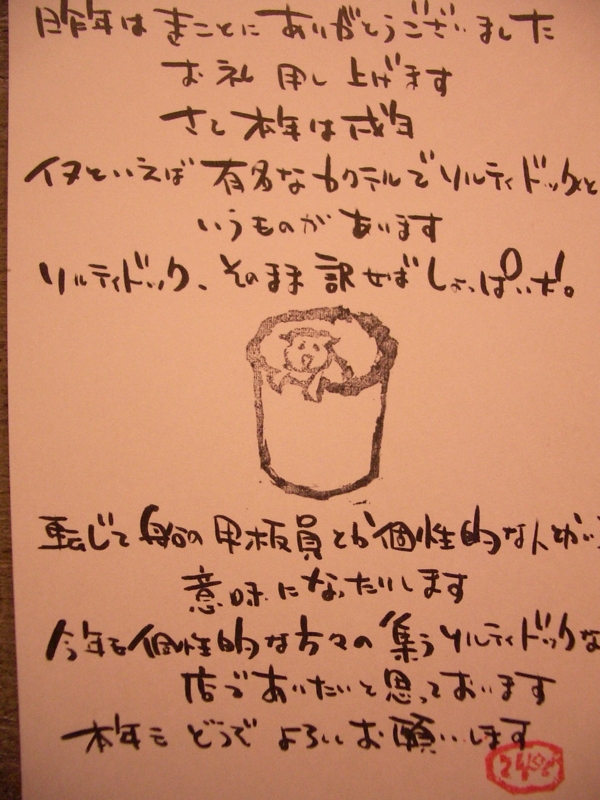 昨年は まことに ありがとうございました
お礼 申し上げます
さて 本年は 戌年
イヌといえば 有名なカクテルで ソルティドックと
いうものが あります
ソルティドック、そのまま 訳せば しょっぱい犬。
転じて 船の 甲板員とか 個性的な人とかい
意味に なったりします
今年も 個性的な方々の 集う ソルティドックな
店で ありたいと 思っております
本年も どうぞ よろしく お願いします